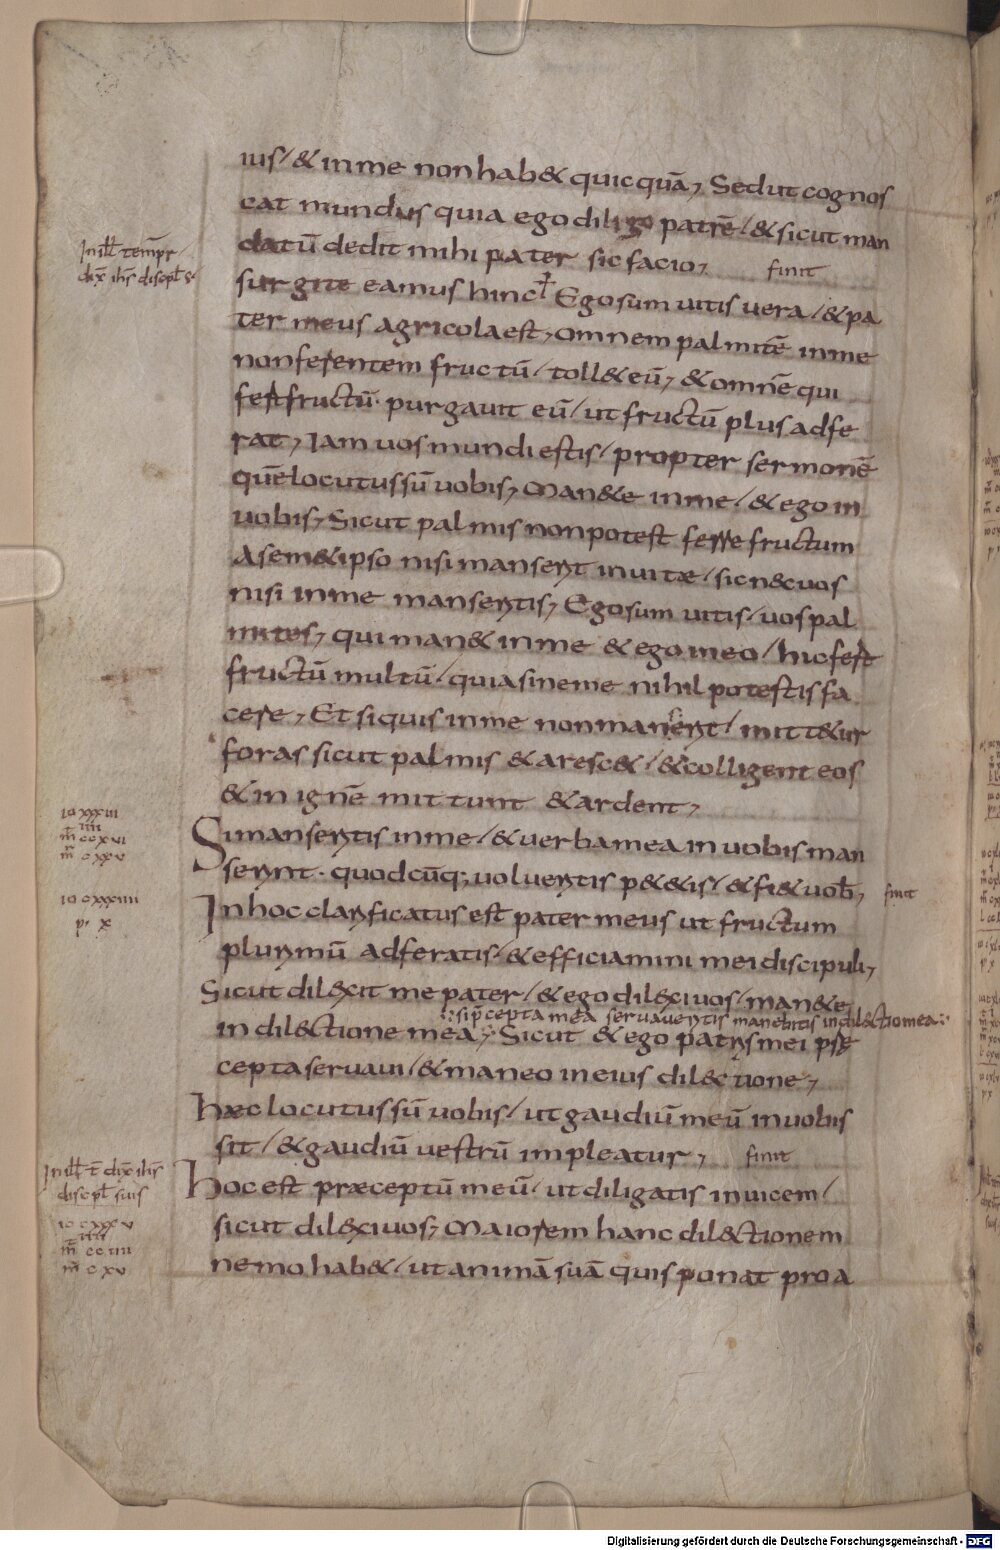 ius / & in me non hab& quicquā, Sed ut cognos
cat mundus quia ego diligo patrē / & sicut man
In ill̄ temp̄r
dix̄ ih̄s discipl̄ s.
datū dedit mihi pater sic facio, finit
surgite eamus hinc Ego sum uitis uera / & pa
ter meus agricola est, omnem palmitē in me
non ferentem fructū / toll& eū, & omnē qui
fert fructū. purgauit eū / ut fructū plus adfe
rat, Iam uos mundi estis / propter sermonē
quē locutus sū uobis, Man&e in me / & ego in
uobis, Sicut palmis non potest ferre fructum
A sem&ipso nisi manserit in uitae / sic n&c uos
nisi in me manseritis, Ego sum uitis / uos pal
mites, qui man& in me & ego in eo / hic fert
fructū multū / quia sine me nihil potestis fa
cere, Et si quis in me non manserit / mitt&ur
foras sicut palmis & aresc& / & colligent eos
& in ignē mittunt & ardent,
io xxxiii
iiii
m̄ ccxvi
m̄ cxxv
Si manseritis in me / & uerba mea in uobis man
serint. quodcūq; uolueritis p&&is / & fi& uob̄, finit
io cxxxiiii
p. x
In hoc clarificatus est pater meus ut fructum
plurimū adferatis / & efficiamini mei discipuli,
Sicut dil&xit me pater / & ego dil&xi uos / man&e
si p̄cepta mea seruaueritis manebitis in dil&ctio mea
in dil&ctione mea, Sicut & ego patris mei prę
cepta seruaui / & maneo in eius dil&ctione,
Haec locutus sū uobis / ut gaudiū meū in uobis
sit / & gaudiū uestrū impleatur, finit
In ill̄ t̄ dix̄ ih̄s
discipl̄ suis
Hoc est praeceptū meū. ut diligatis inuicem /
io cxxxv
iiii
m̄ cciiii
m̄ cxv
sicut dil&xi uos, Maiorem hanc dil&ctionem
nemo hab& / ut animā suā quis ponat pro a
Digitalisierung gefördert durch die Deutsche Forschungsgemeinschaft - DFG